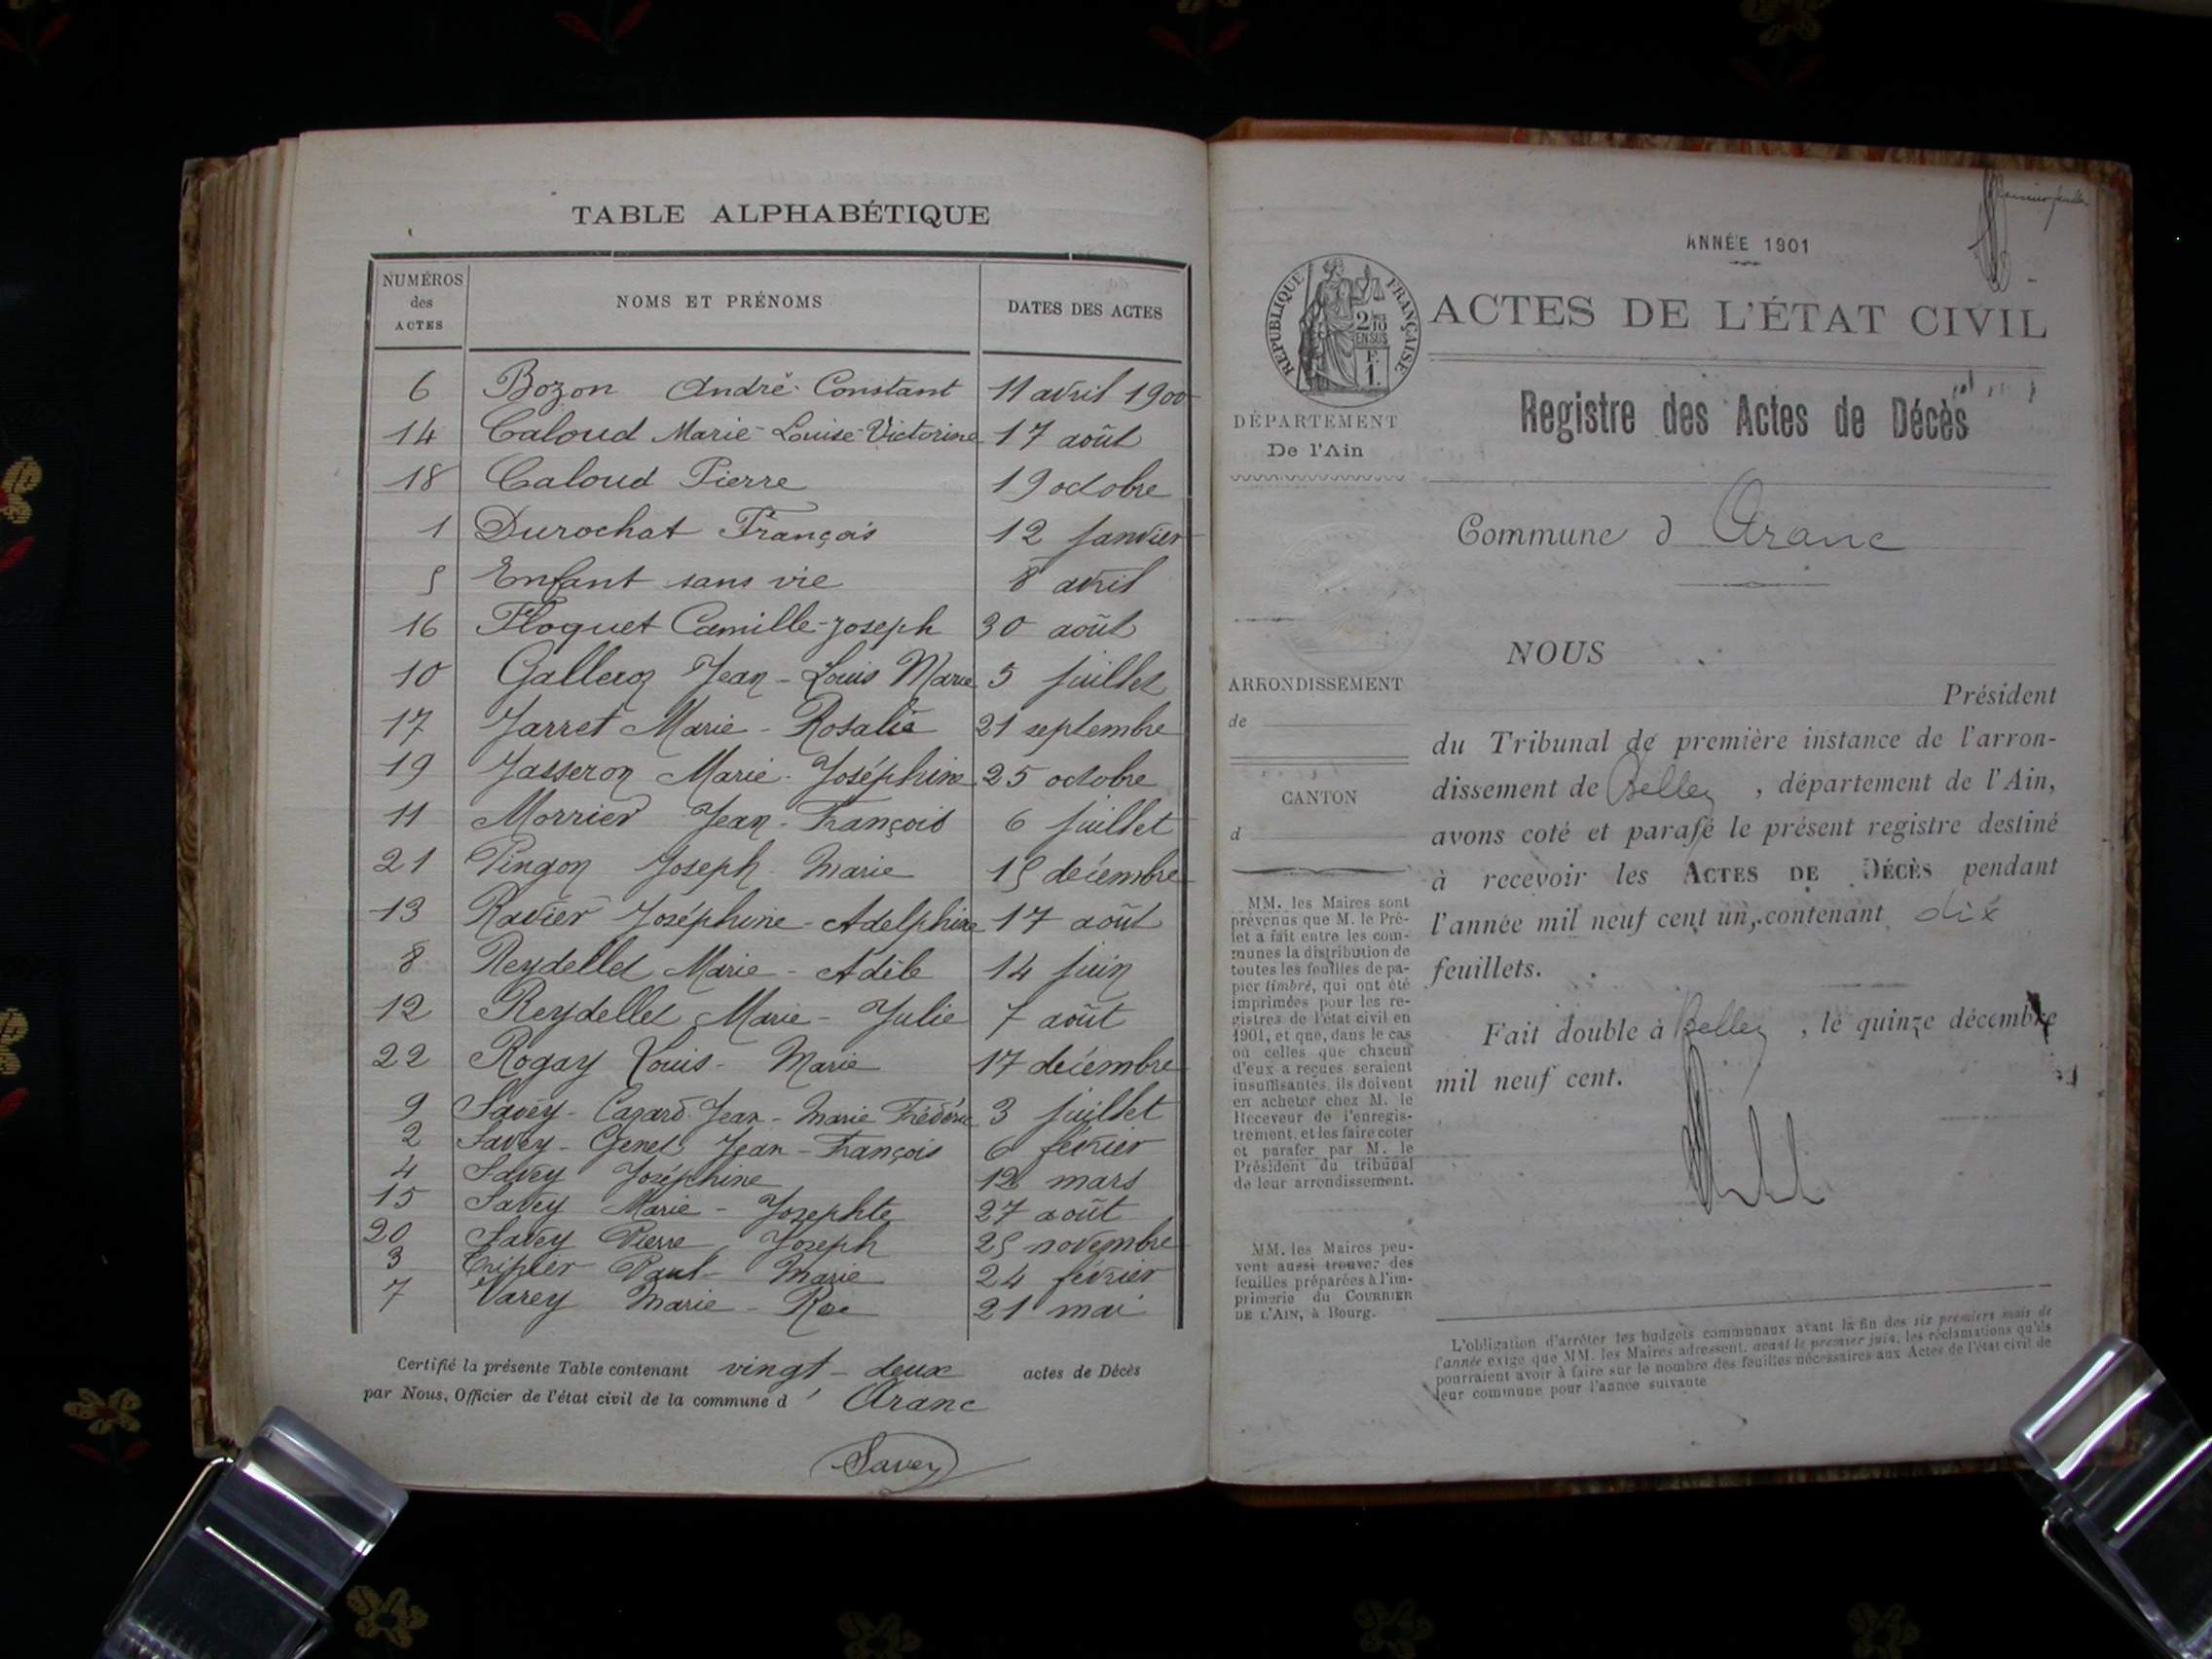 TABLE ALPHABÉTIQUE
NUMÉROS des ACTES NOMS ET PRÉNOMS DATES DES ACTES
6 Bozon André Constant 11 avril 1900
14 Caloud Marie-Louise-Victorine 17 août
18 Caloud Pierre 19 octobre
1 Durochat François 12 janvier
5 Enfant sans vie 8 avril
16 Floquet Camille-Joseph 30 août
10 Jean-Louis Marie 5 juillet
17 Jarret Marie-Rosalie 21 septembre
19 Jasseron Marie-Joséphine 25 octobre
11 Morrier Jean-François 6 juillet
21 Pingon Joseph-Marie 15 décembre
13 Ravier Joséphine-Adelphine 17 août
8 Reydellet Marie-Adèle 14 juin
12 Reydellet Marie-Julie 7 août
22 Rogay Louis-Marie 17 décembre
9 Savey-Cazard Jean-Marie Frédéric 3 juillet
2 Savey-Genet Jean-François 6 février
4 Savey Joséphine 12 mars
15 Savey Marie-Josephte 27 août
20 Savey Pierre Joseph 25 novembre
3 Tripier Paul-Marie 24 février
7 Varey Marie- 21 mai
Certifié la présente Table contenant vingt-deux actes de Décès
par Nous, Officier de l'état civil de la commune d'Aranc
Savey
ANNÉE 1901
RÉPUBLIQUE FRANÇAISE
2/10 EN SUS
F. 1.
ACTES DE L'ÉTAT CIVIL
DÉPARTEMENT
De l'Ain
Registre des Actes de Décès
Commune d Aranc
ARRONDISSEMENT
de
CANTON
d
MM. les Maires sont
prévenus que M. le Pré-
fet a fait entre les com-
munes la distribution de
toutes les feuilles de pa-
pier timbré, qui ont été
imprimées pour les re-
gistres de l'état civil en
1901, et que, dans le cas
où celles que chacun
d'eux a reçues seraient
insuffisantes, ils doivent
en acheter chez M. le
Receveur de l'enregis-
trement, et les faire coter
et parafer par M. le
Président du tribunal
de leur arrondissement.
MM. les Maires peu-
vent aussi trouver des
feuilles préparées à l'im-
primerie du COURRIER
DE L'AIN, à Bourg.
NOUS
Président
du Tribunal de première instance de l'arron-
dissement de Belley , département de l'Ain,
avons coté et parafé le présent registre destiné
à recevoir les ACTES DE DÉCÈS pendant
l'année mil neuf cent un, contenant dix
feuillets.
Fait double à Belley , le quinze décembre
mil neuf cent.
L'obligation d'arrêter les budgets communaux avant la fin des six premiers mois de
l'année exige que MM. les Maires adressent, avant le premier juin, les réclamations qu'ils
pourraient avoir à faire sur le nombre des feuilles nécessaires aux Actes de l'état civil de
leur commune pour l'année suivante